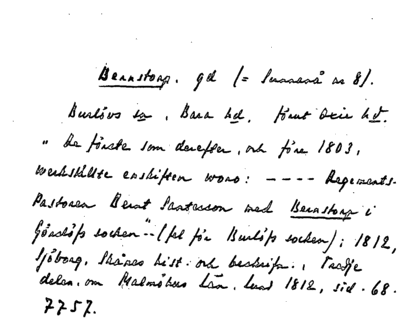 Bernstorp, gd (= Sunnanå nr 8).
Burlövs sn, Bara hd, förut Oxie hd.
"De förste som derefter, och före 1803,
werkställte enskiften woro: ---- Regements-
Pastoren Bernt Santesson med Bernstorp i
Görslöfs socken"-- (fel för Burlöfs socken); 1812,
Sjöborg, Skånes hist. och beskrifn., Tredje
delen, om Malmöhus län, Lund 1812, sid. 68.
7757.